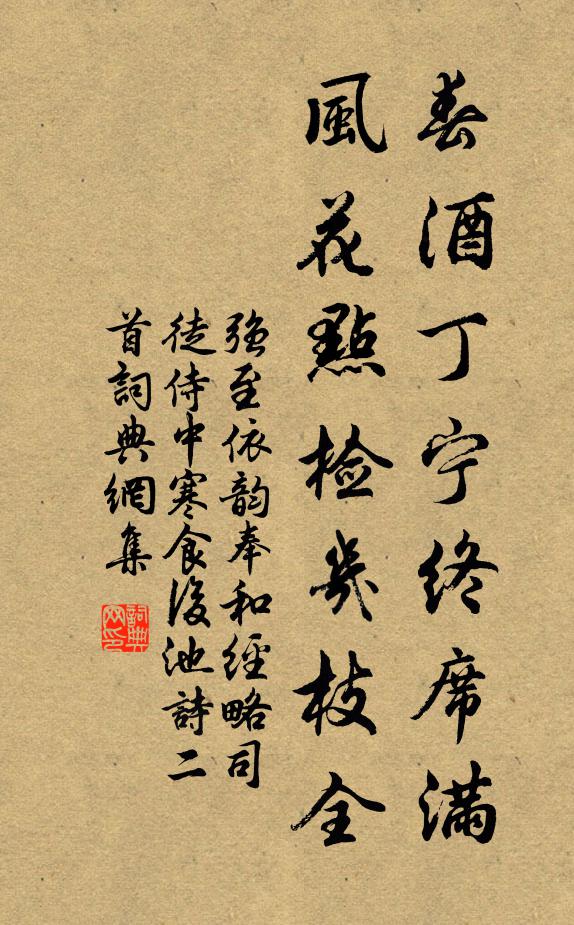 春酒丁宁終席滿
風花點檢幾枝全
強至依韵奉和經略司
徒侍中寒食後池詩二
首詞典網集
詞典网印